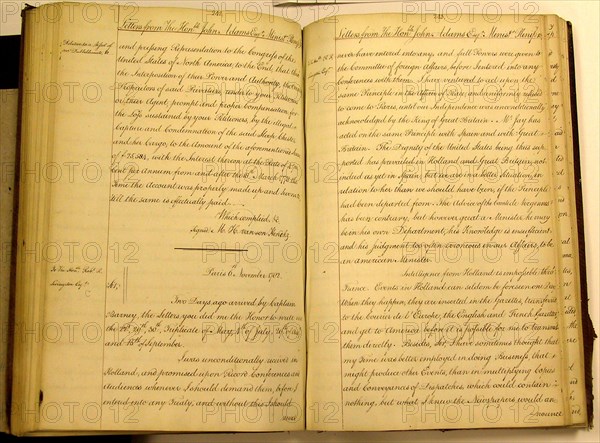 241
Letters from The Honble John Adams Esqr Minister
and pressing Representation to the Congress of the
United States of North America, to the End, that this
the Interposition of their Power and Authority, the
Proprietors of said Privateer, render to your Petitioners
or their Agent prompt and proper Compensation for
the Loss sustained by your Petitioners, by the illegal
Capture and Condemnation of the said Sloop
and her Cargo, to the Amount of the aforementioned
with the Interest thereon at the Rate of
per Annum from and after the March
time the Account was properly made up and
till the same is effectually paid.
Which complied &c
Signed M.
Paris 6th November 1782.
To The Honble Robt R.
Livingston Esqr
Sir,
Two Days ago arrived by Captain
Barney, the Letters you did me the Honor to write
the 22d, 29th, 30th, Triplicate of May, 4th of July,
and 15th of September.
I was unconditionally received in
Holland, and promised upon Record Conferences and
Audiences whenever I should demand them, before I
entered into any Treaty, and without this I should
never
243
Letters from The Honble John Adams Esqr Minister
never have entered into any, and full Powers were given to
the Committee of foreign Affairs, before I entered into any
Conferences with them. I have ventured to act upon the
same Principle in the Affair of Peace, and uniformly refused
to come to Paris, until our Independence was unconditionally
acknowledged by the King of Great Britain. Mr Jay has
acted on the same Principle with Spain and with Great
Britain. The Dignity of the United States being thus sup-
ported has prevailed in Holland and Great Britain, not
indeed as yet in Spain, but we are in a better Situation in
relation to her than we should have been, if the Principle
had been departed from. The Advice of the
has been contrary, but however great a Minister he may
be in his own Department, his Knowledge is insufficient
and his Judgment too often erroneous in our Affairs, to be
an American Minister.
Intelligence from Holland is impossible thro
France. Events in Holland can seldom be foreseen one Day
When they happen, they are inserted in the Gazettes, transferred
to the Courier de l'Europe, the English and French Gazettes
and get to America before it is possible for me to transmit
them directly. Besides, Sir, I have sometimes thought that
my Time was better employed in doing Business, that
might produce other Events, than in multiplying Copies
and Conveyances of Dispatches, which could contain
nothing, but what I knew the Newspapers would an-
nounce